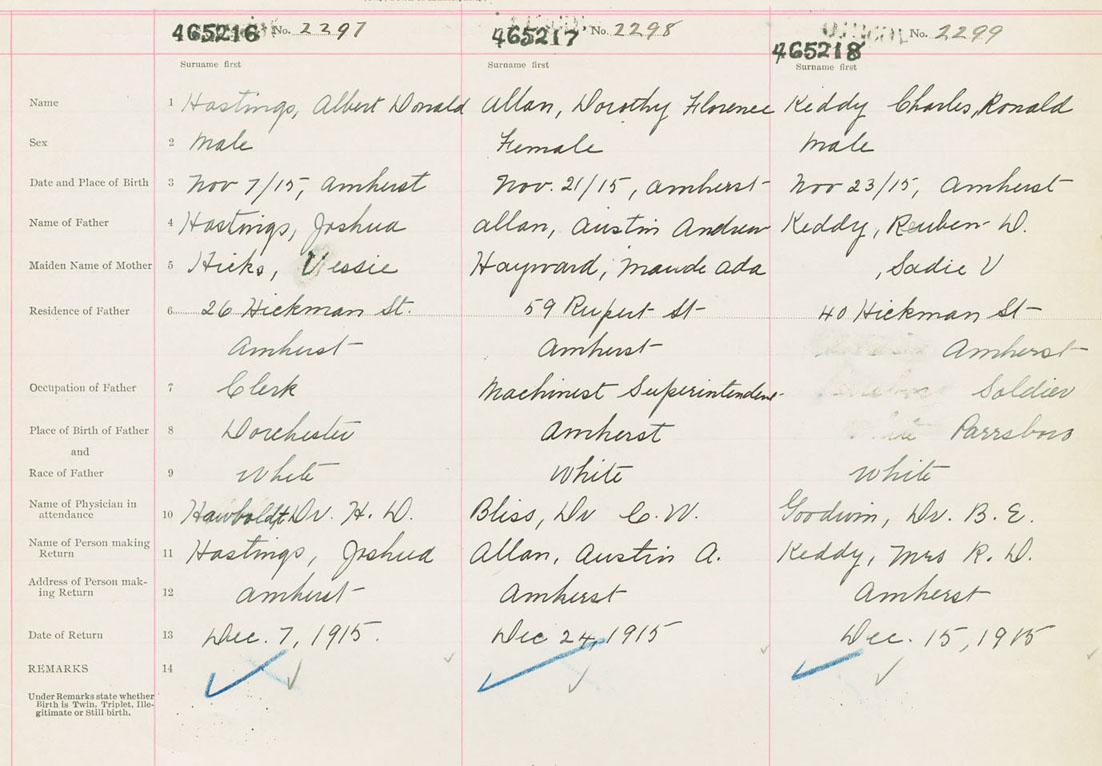 465216 No. 2297 465217 No. 2298 465218 No. 2299
Surname first Surname first Surname first
Name 1 Hastings, Albert Donald Allan, Dorothy Florence Keddy Charles, Ronald
Sex 2 Male Female Male
Date and Place of Birth 3 Nov 7/15, Amherst Nov. 21/15, Amherst Nov 23/15, Amherst
Name of Father 4 Hastings, Joshua Allan, Austin Andrew Keddy, Reuben D.
Maiden Name of Mother 5 Hicks, Vessie Hayward, Maude Ada , Sadie V
Residence of Father 6 26 Hickman St. 59 Rupert St 40 Hickman St
Amherst Amherst Amherst
Occupation of Father 7 Clerk Machinest Superintendent Soldier
Place of Birth of Father 8 Dorchester Amherst Parrsboro
and
Race of Father 9 White White White
Name of Physician in
attendance 10 Hawboldt, Dr. H. D. Bliss, Dr C. W. Goodwin, Dr. B. E.
Name of Person making
Return 11 Hastings, Joshua Allan, Austin A. Keddy, Mrs R. D.
Address of Person mak-
ing Return 12 Amherst Amherst Amherst
Date of Return 13 Dec. 7, 1915. Dec 24, 1915 Dec. 15, 1915
REMARKS 14
Under Remarks state whether
Birth is Twin, Triplet, Ille-
gitimate or Still-birth.